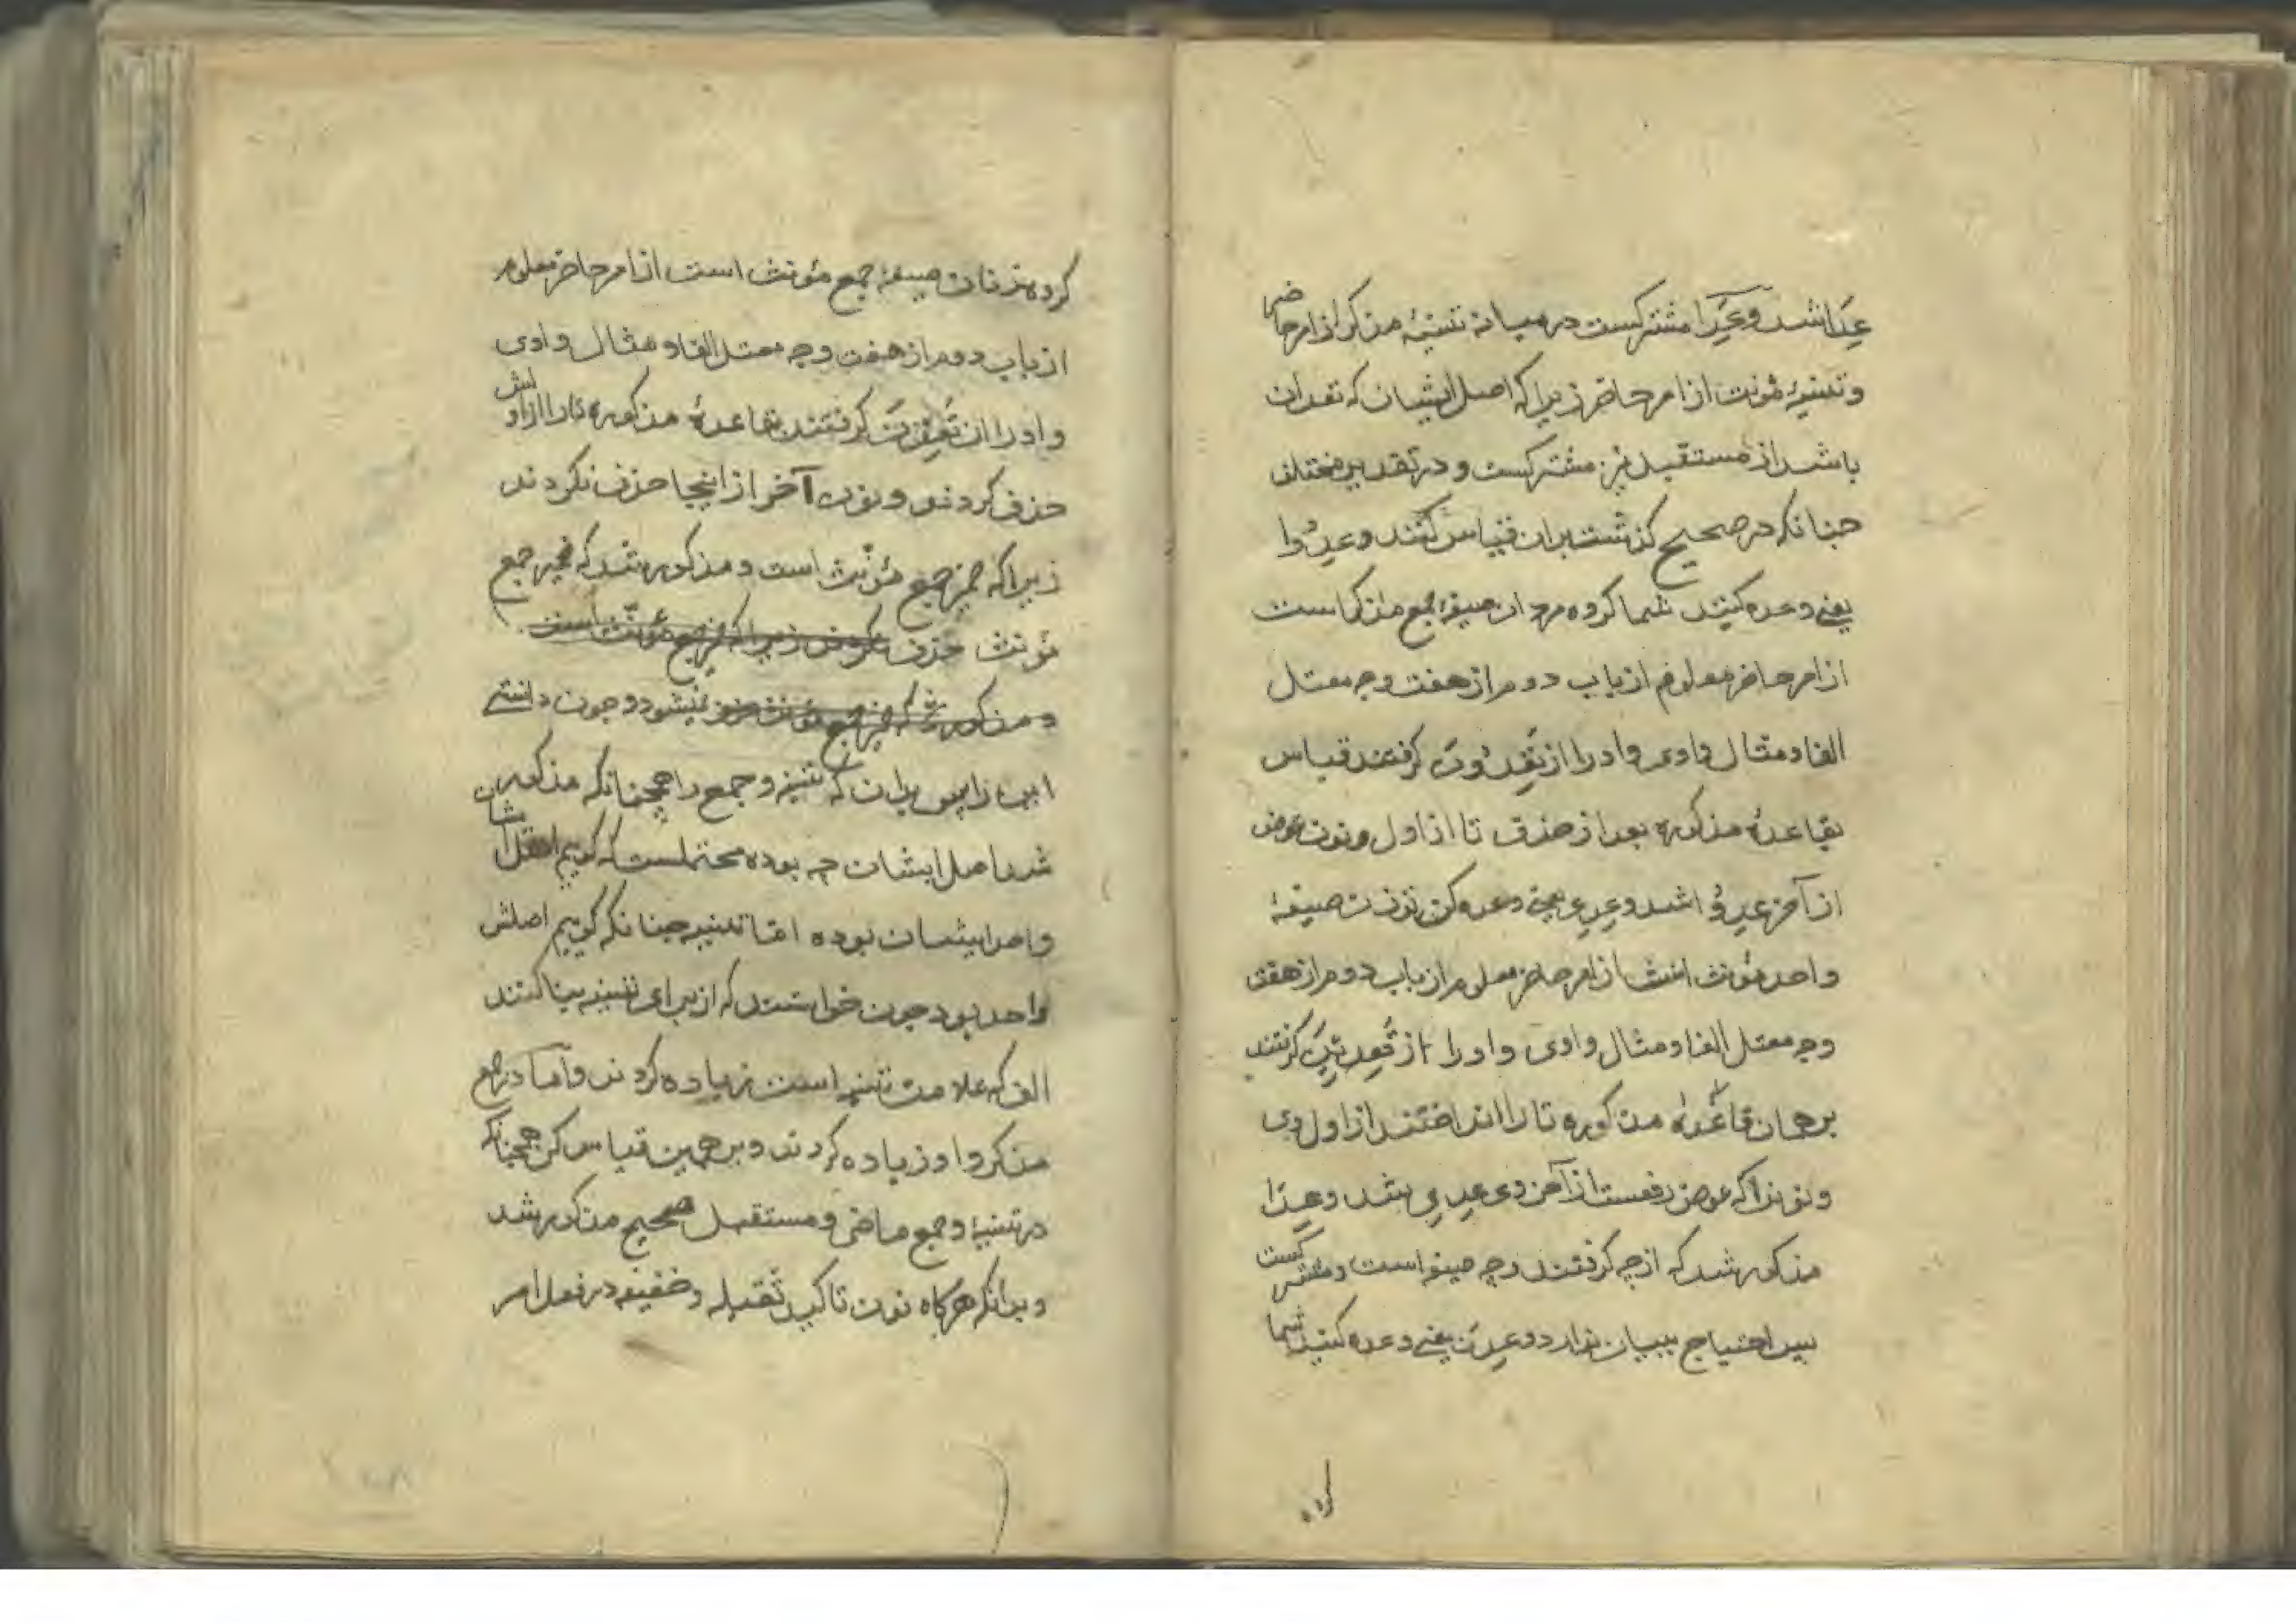 عِدَا شد وعِدَا مشتركست در میانه تثنیهٔ مذکر از امر حاضر
و تثنیهٔ مؤنث از امر حاضر زیرا که اصل ایشان که تعدان
باشد از مستقبل نیز مشترکست و در تقدیر مختلف
چنانکه در صحیح گذشت بران قیاس کنند وعِدُوا
یعنی وعده کنید شما کروه مردان صیغهٔ جمع مذکر است
از امر حاضر معلوم از باب دوم از هفت وجه معتل
الفا و مثال واوی واو را از تَعِدُونَ کرفتند قیاس
بقاعدهٔ مذکوره بعد از حذف تا از اول و نون عوض
از آخر عِدُوا شد وعِدِی یعنی وعده کن تو زن صیغهٔ
واحد مؤنث است از امر حاضر معلوم از باب دوم از هفت
وجه معتل الفا و مثال واوی واو را از تَعِدِینَ کرفتند
بر همان قاعدهٔ مذکوره تا را انداختند از اول وی
و نونرا که عوض رفعست از آخر وی عِدِی شد وعِدَا
مذکور شد که از چه کرفتند و چه صیغه است و مشترکست
پس احتیاج ببیان ندارد وعِدْنَ یعنی وعده کنید شما
کروه
کروه زنان صیغهٔ جمع مؤنث است از امر حاضر معلوم
از باب دوم از هفت وجه معتل الفا و مثال واوی
واو را از تَعِدْنَ کرفتند بقاعدهٔ مذکوره تا را از اولش
حذف کردند و نون آخر از اینجا حذف نکردند
زیرا که ضمیر جمع مؤنث است و مذکور شد که ضمیر جمع
مؤنث حذف نکردند زیرا که ضمیر جمع مؤنث است
و مذکور شد که ضمیر جمع مؤنث حذف نمیشود و چون دانستی
این را پس بدان که تثنیه و جمع را همچنانکه مذکور
شد اصل ایشان چه بوده محتملست که کوییم اصل شان
واحد ایشان بوده اما تثنیه چنانکه کوییم اصلش
واحد بود چون خواستند که از برای تثنیه بنا کنند
الف که علامت تثنیه است زیاده کردند و اما در جمع
مذکر واو زیاده کردند و بر همین قیاس کن همچنانکه
در تثنیه و جمع ماضی و مستقبل صحیح مذکور شد
و بدانکه هرکاه نون تاکید ثقیله و خفیفه در فعل امر